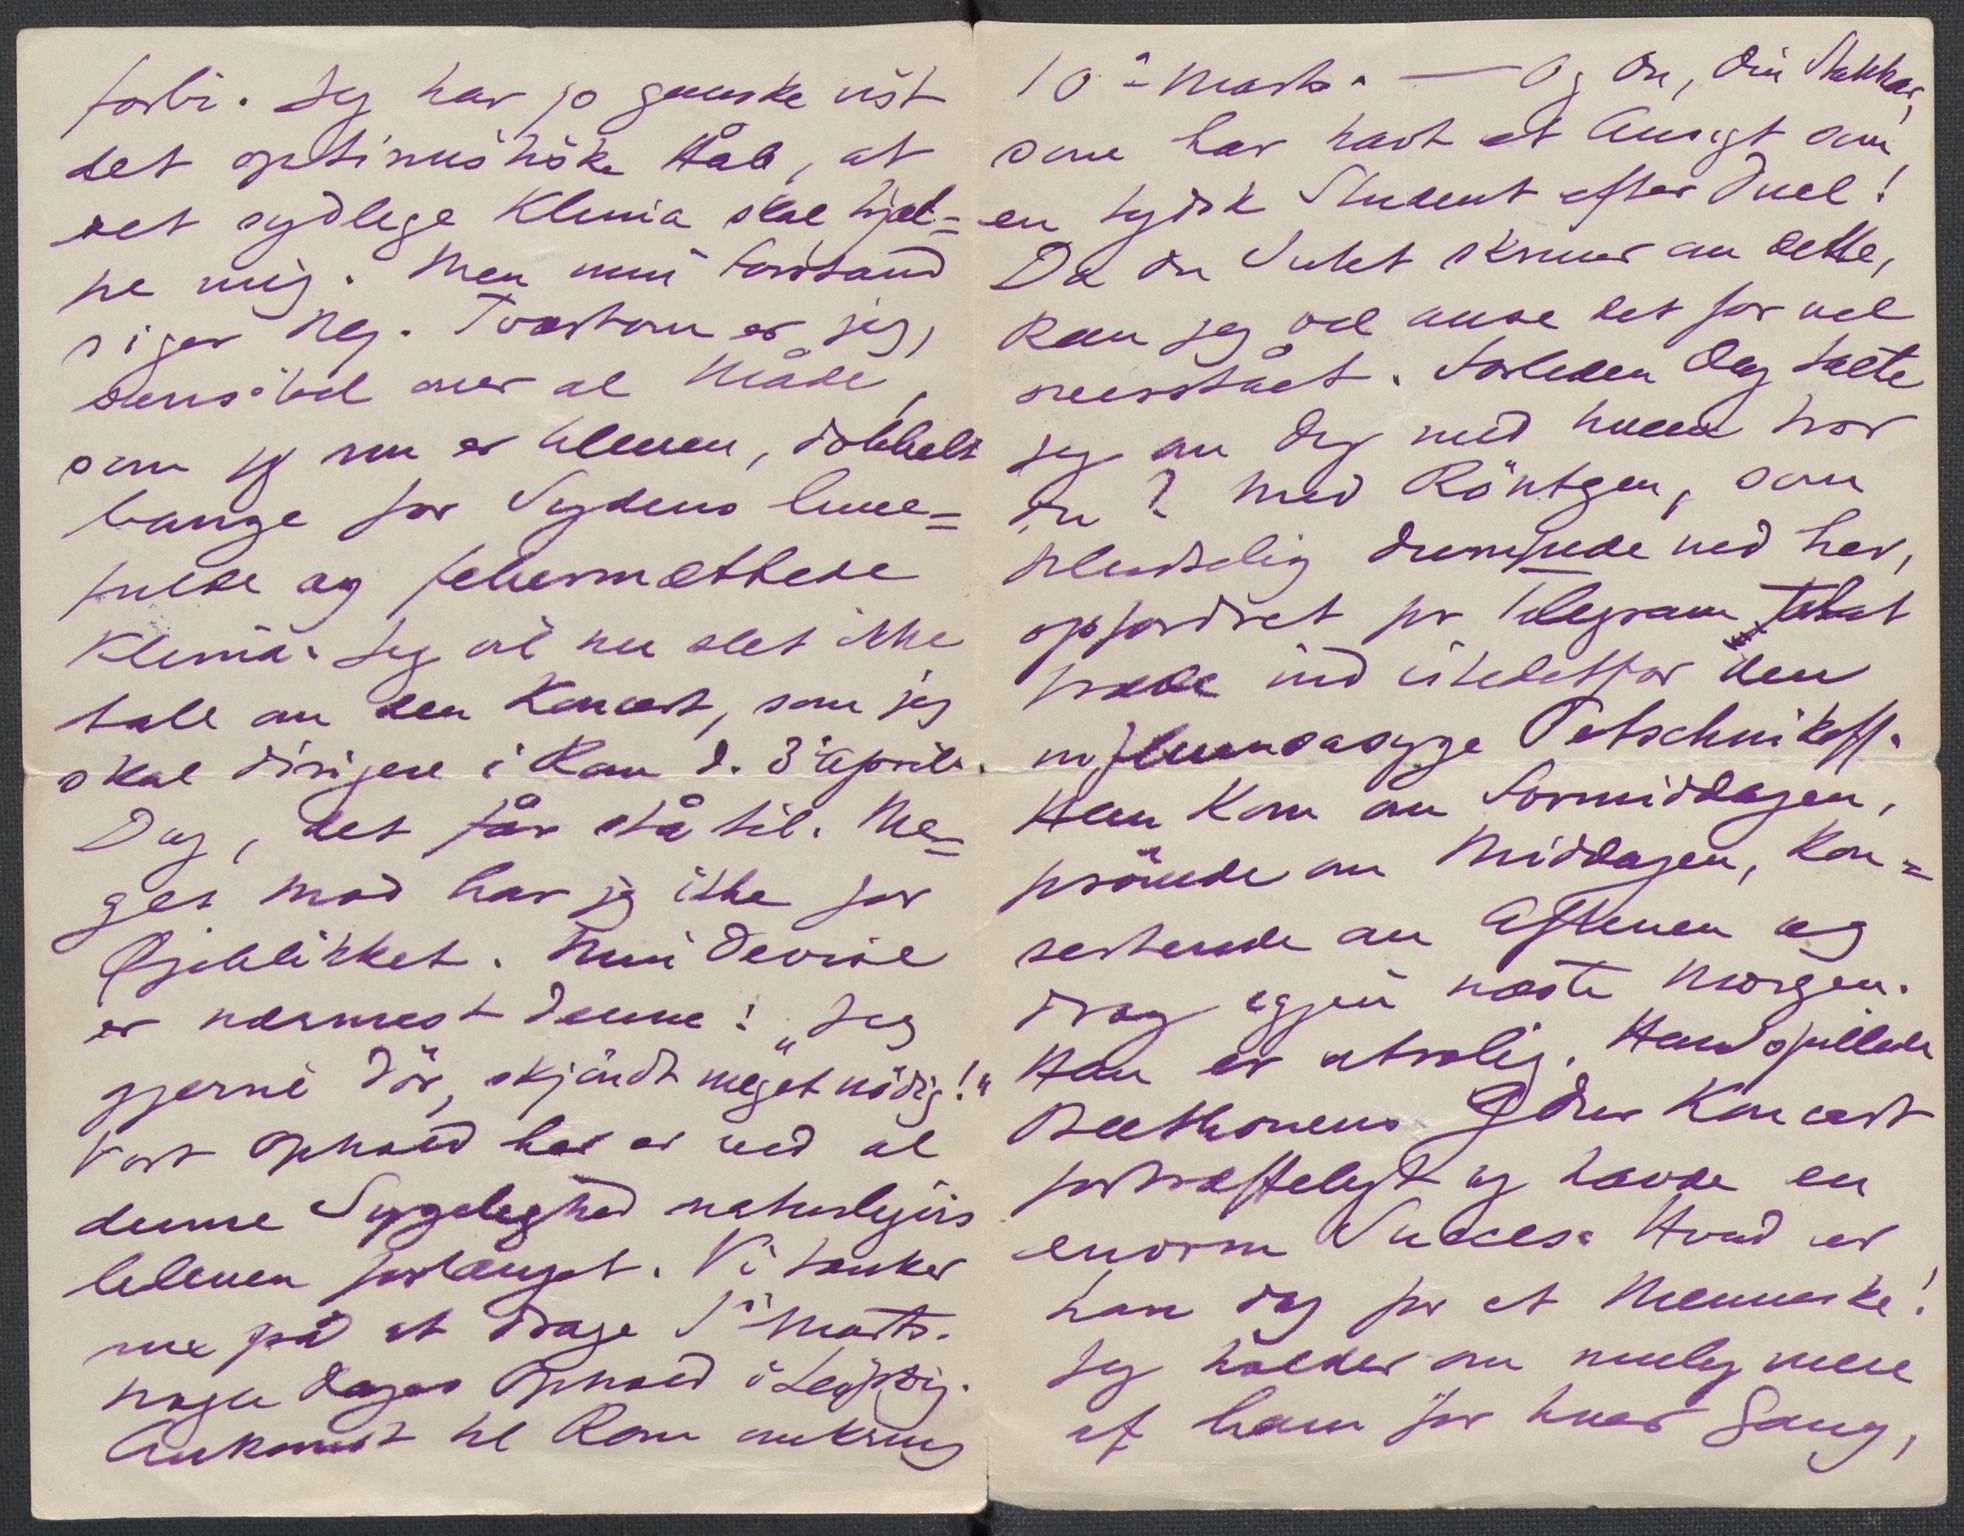 forbi. Jeg har jo ganske vist
det optimistiske Håb, at
det sydlige Klima skal hjæl=
pe mig. Men min Forstand
siger Nej. Tvertom er jeg,
sensibel over al Måde,
som jeg nu er bleven, dobbelt
bange for Sydens lune=
fulde og febermættede
Klima. Jeg vil nu slet ikke
tale om den Koncert, som jeg
skal dirigere i Rom d. 3die April.
Dog, det får stå til. Me=
get Mod har jeg ikke for
Øjeblikket. Min Devise
er nærmest denne: „Jeg
gjerne dör, skjöndt meget nödig!"
Vort Ophold her er ved al
denne Sygelighed naturligvis
bleven forlænget. Vi tænker
nu på at drage 1ste Marts.
nogle Dages Ophold i Leipzig.
Ankomst til Rom omkring
10de Marts. — Og Du, Din Stakkar,
som har havt et Ansigt som
en tydsk Student efter Duel!
Da Du Intet skriver om dette,
kan jeg vel anse det for vel
overstået. Forleden Dag talte
jeg om Dig med hvem tror
Du? Med Röntgen, som
pludselig dumpede ned her,
opfordret pr Telegram til at
træde ind istedetfor den
influenzasyge Petschnikoff.
Han kom om Formiddagen,
prövede om Middagen, kon=
serterede om Aftenen og
drog igjen næste Morgen.
Han er utrolig. Han spillede
Beethovens G dur Koncert
fortræffeligt og havde en
enorm Succes. Hvad er
han dog for et Menneske!
Jeg holder om mulig mere
af ham for hver Gang,